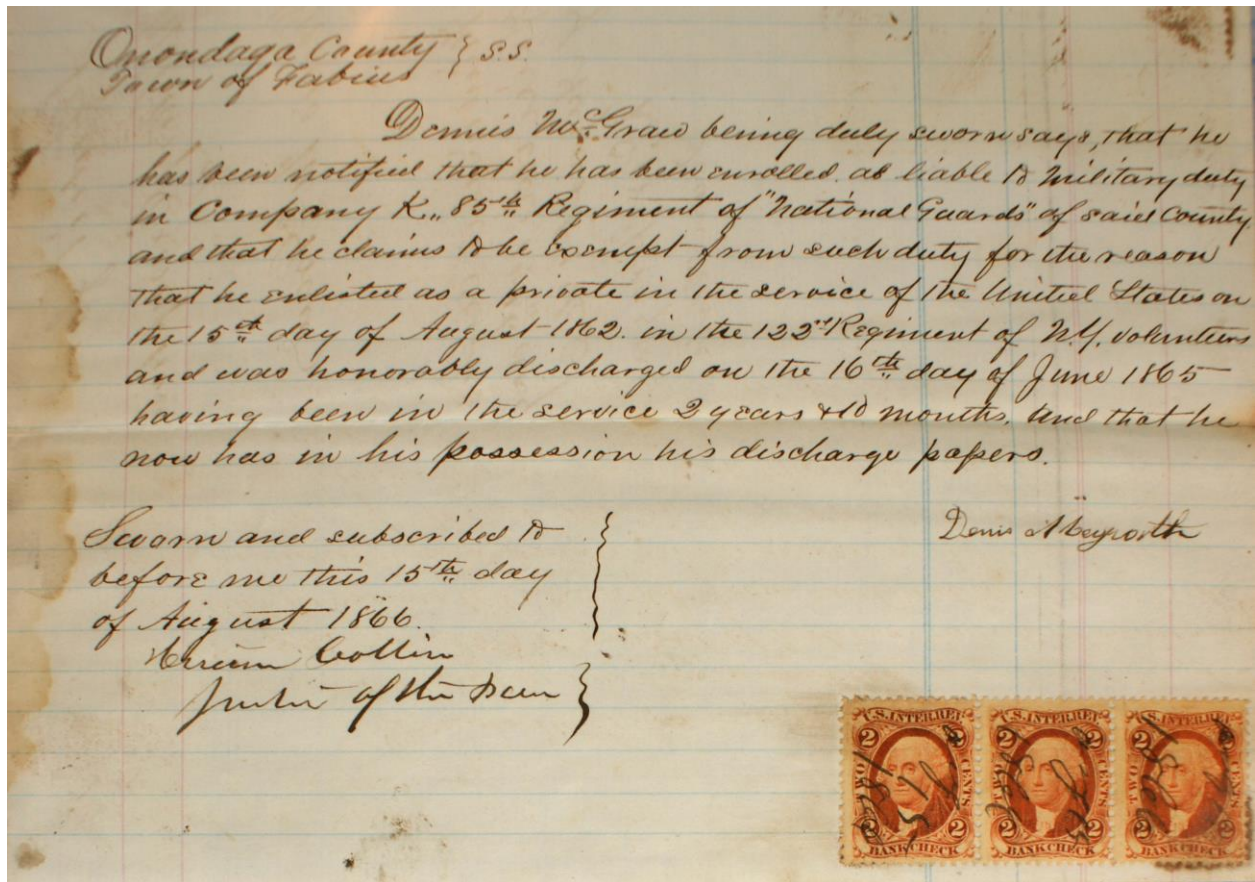 Onondaga County } S.S.
Town of Fabius
Dennis McGraw being duly sworn says, that he
has been notified that he has been enrolled. as liable to Military duty
in Company K., 85th Regiment of "National Guards" of said County.
and that he claims to be exempt from such duty for the reason
that he enlisted as a private in the service of the United States on
the 15th day of August 1862. in the 122d Regiment of N.Y. volunteers
and was honorably discharged on the 16th day of June 1865
having been in the service 2 years & 10 months. and that he
now has in his possession his discharge papers.
Denis
Sworn and subscribed to
before me this 15th day
of August 1866.
Collin
Justice of the Peace
U.S. INTER. REV. U.S. INTER. REV. U.S. INTER. REV.
2 2 2 2 2 2
TWO CENTS TWO CENTS TWO CENTS
2 2 2 2 2 2
BANK CHECK BANK CHECK BANK CHECK